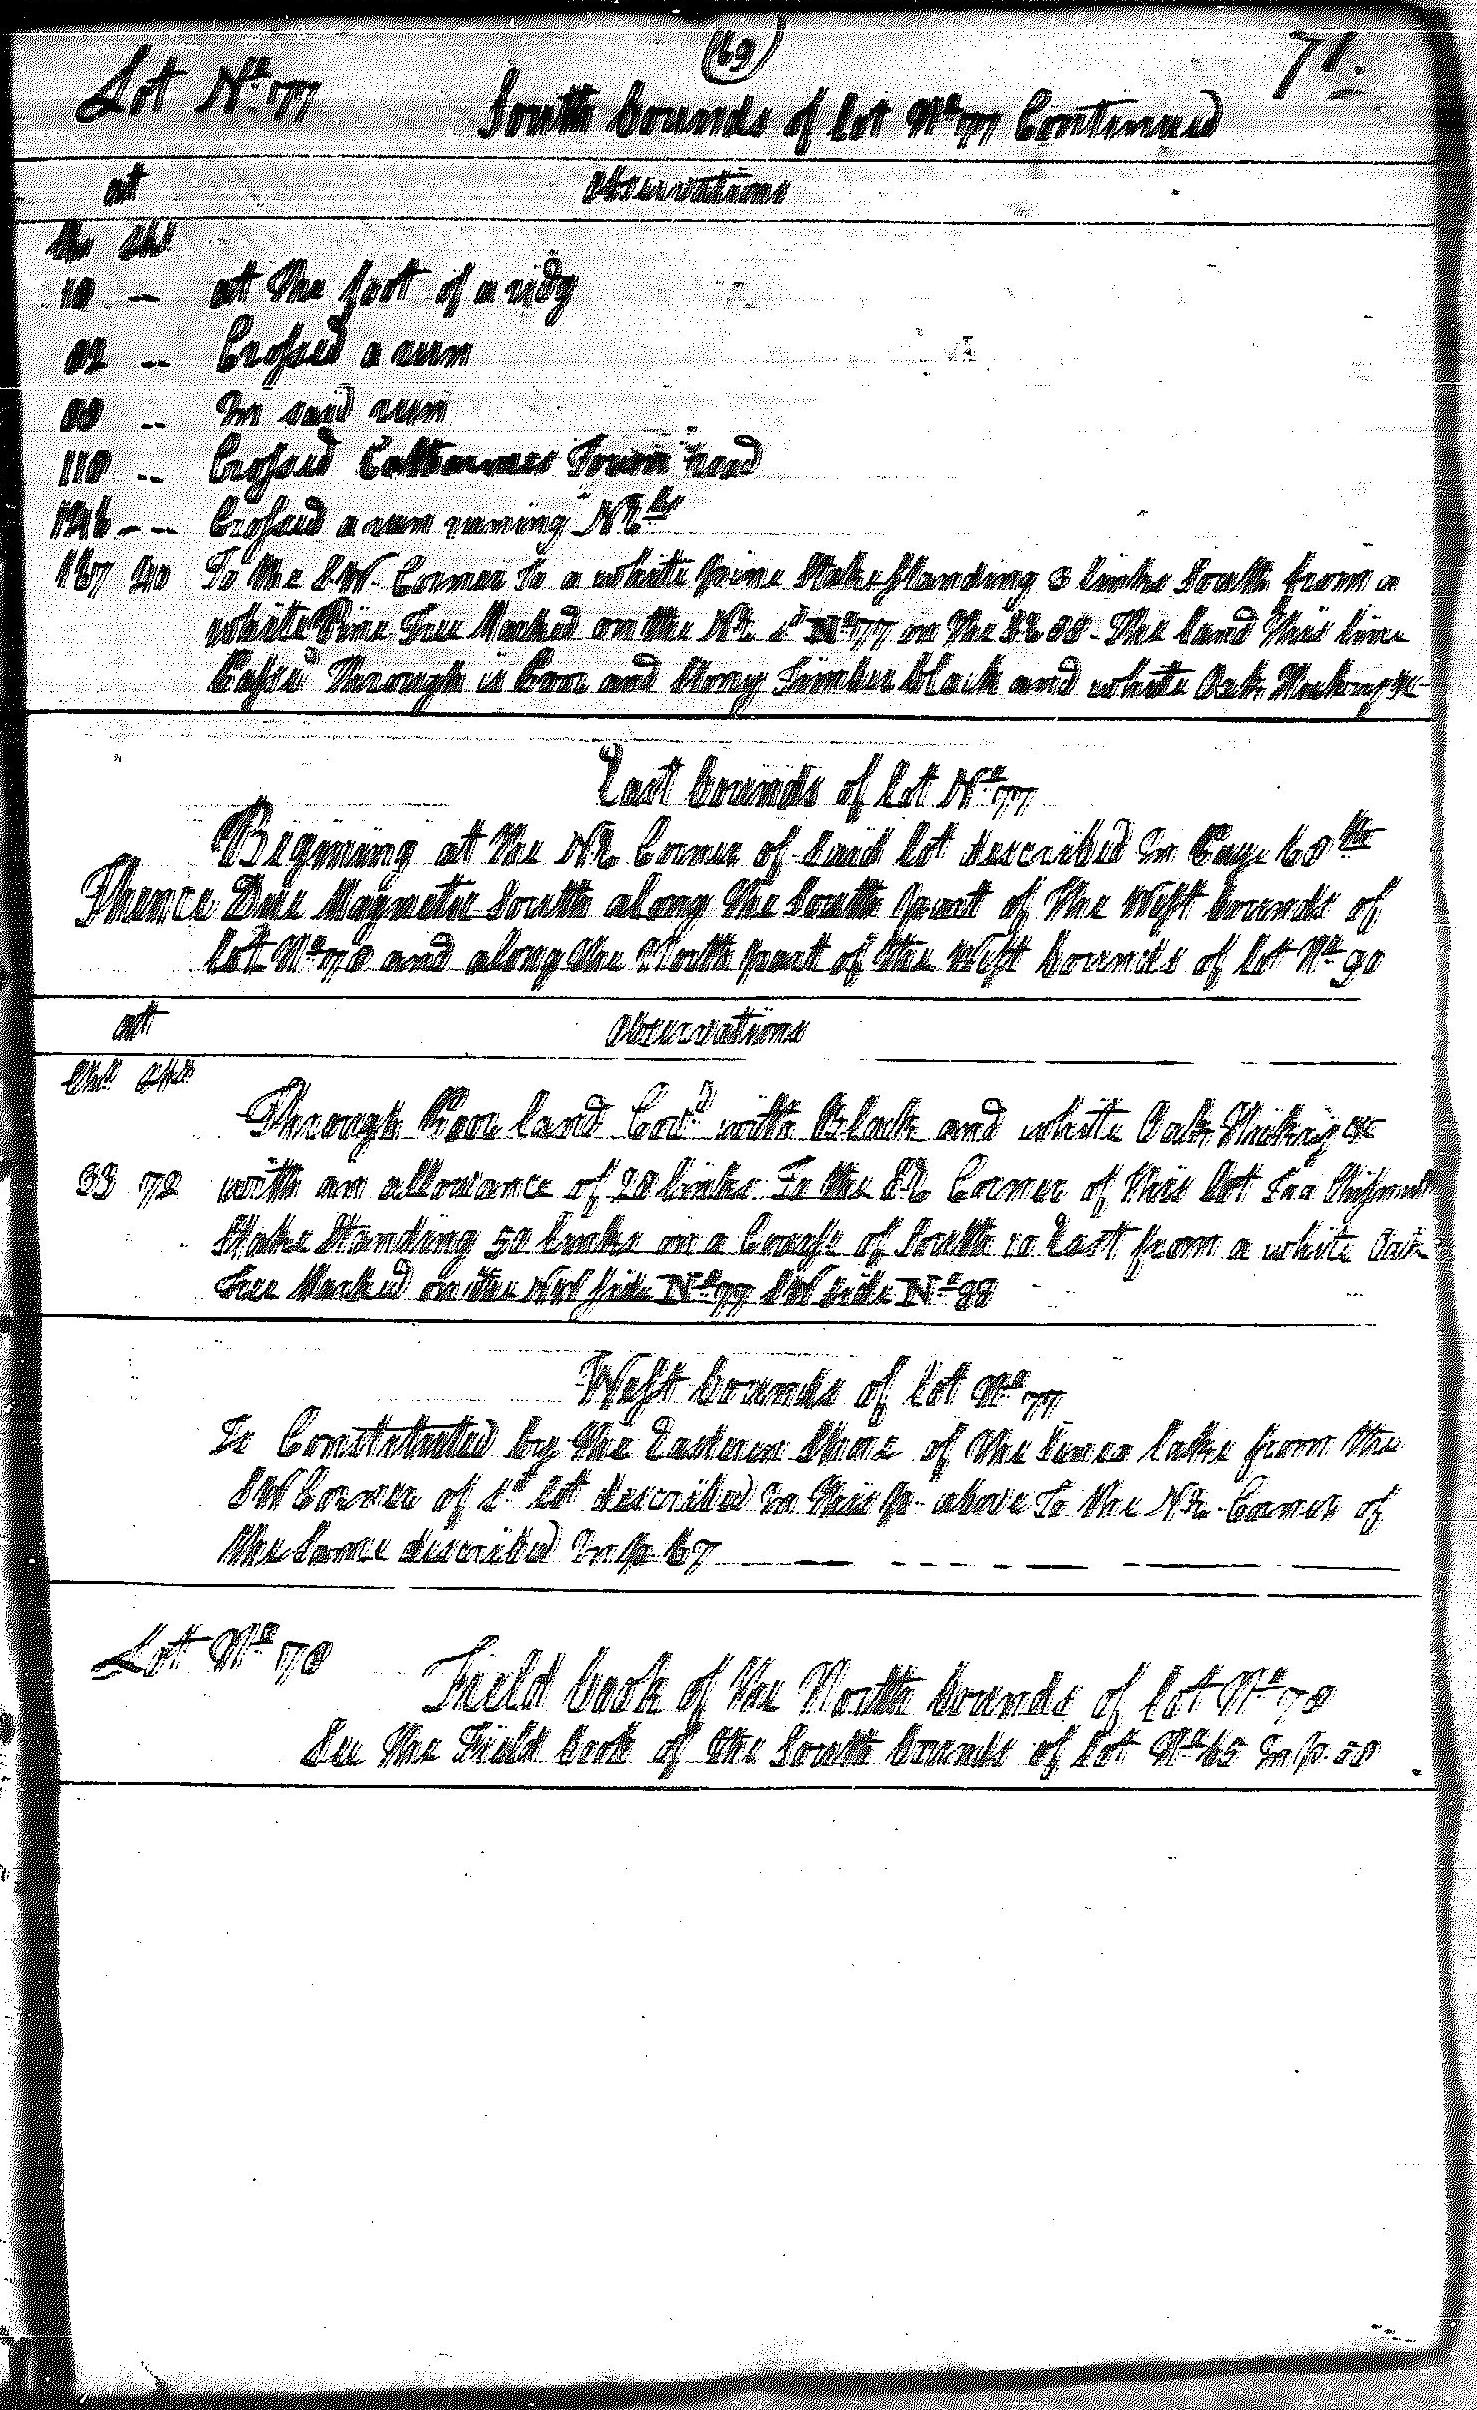 69
71.
Lot No. 77
South bounds of lot No. 77 Continued
at Observations
10 — at the foot of a ridg
82 -- Crossed a run
88 -- In said run
110 -- Crossed Catharines Town road
146 -- Crossed a run runing
167 20 To the S.W. Corner To a white pine Stake Standing 3 links South from a
white Pine Tree Marked on the No. 77 on the The land This line
Passd Through is Poor and Stony Timber black and white Oak
East bounds of lot No. 77
Begining at the Corner of Said lot described In Page 68th
Thence Due Magnetic South along the South part of the West bounds of
lot No. 78 and along the North part of the West bounds of lot No. 90
at Observations
Chs. Lks.
Through Poor land Cov.d with Black and white Oak &c
33 72 with an allowance of 20 links To the Corner of this lot To a
Stake Standing 50 links on a Course of South 10 East from a white Oak
Tree Marked on the NW Side No. 77 SW Side No.
West bounds of lot No. 77
Is Constituted by the Eastern Shore of the lake from the
SW Corner of Sd. lot described In this p. above To the Corner of
the Same described In p 67
Lot No. 78
Field book of the North bounds of lot No. 78
See the Field book of the South bounds of lot No. 65 In p.